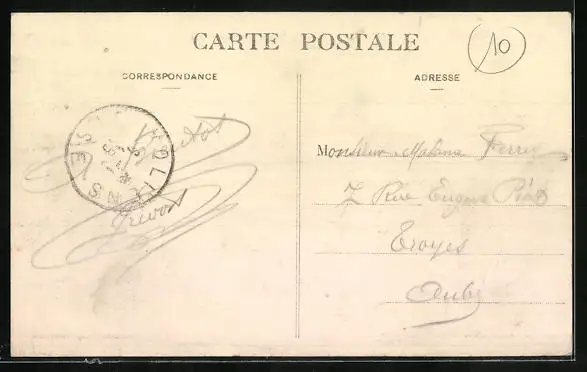 CARTE POSTALE
10
CORRESPONDANCE
ADRESSE
Prevost
Monsieur Madame
7 Rue Eugène
Troyes
Aube